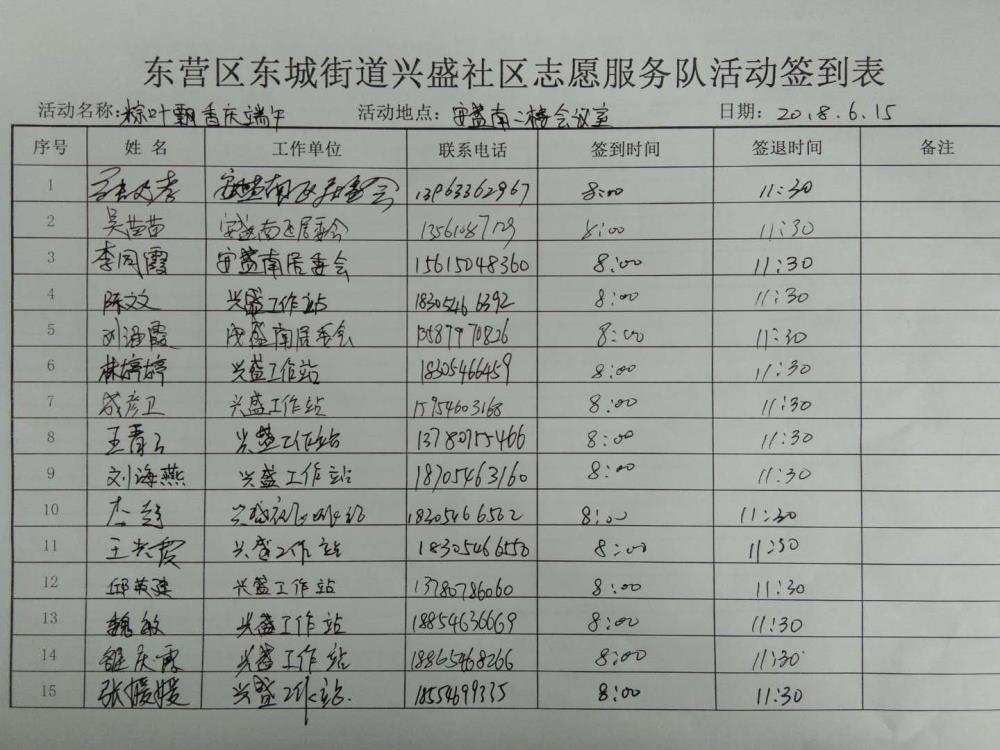 东营区东城街道兴盛社区志愿服务队活动签到表
活动名称:粽叶飘香庆端午 活动地点:安盛南二楼会议室 日期: 2018.6.15
序号 姓名 工作单位 联系电话 签到时间 签退时间 备注
1 13963362967 8:00 11:30
2 吴苗苗 安盛南区居委会 8:00 11:30
3 李同霞 安盛南居委会 15615048360 8:00 11:30
4 陈文文 兴盛工作站 18305466392 8:00 11:30
5 刘海霞 安盛南居委会 15587970826 8:00 11:30
6 林婷婷 兴盛工作站 18305466459 8:00 11:30
7 成彦卫 兴盛工作站 15954603168 8:00 11:30
8 兴盛工作站 13780755466 8:00 11:30
9 刘海燕 兴盛工作站 18705463160 8:00 11:30
10 18305466502 8:00 11:30
11 王兴霞 兴盛工作站 18305466550 8:00 11:30
12 邱英建 兴盛工作站 13780786060 8:00 11:30
13 魏敏 兴盛工作站 18854636669 8:00 11:30
14 兴盛工作站 18865468266 8:00 11:30
15 张媛媛 兴盛工作站. 18554699335 8:00 11:30